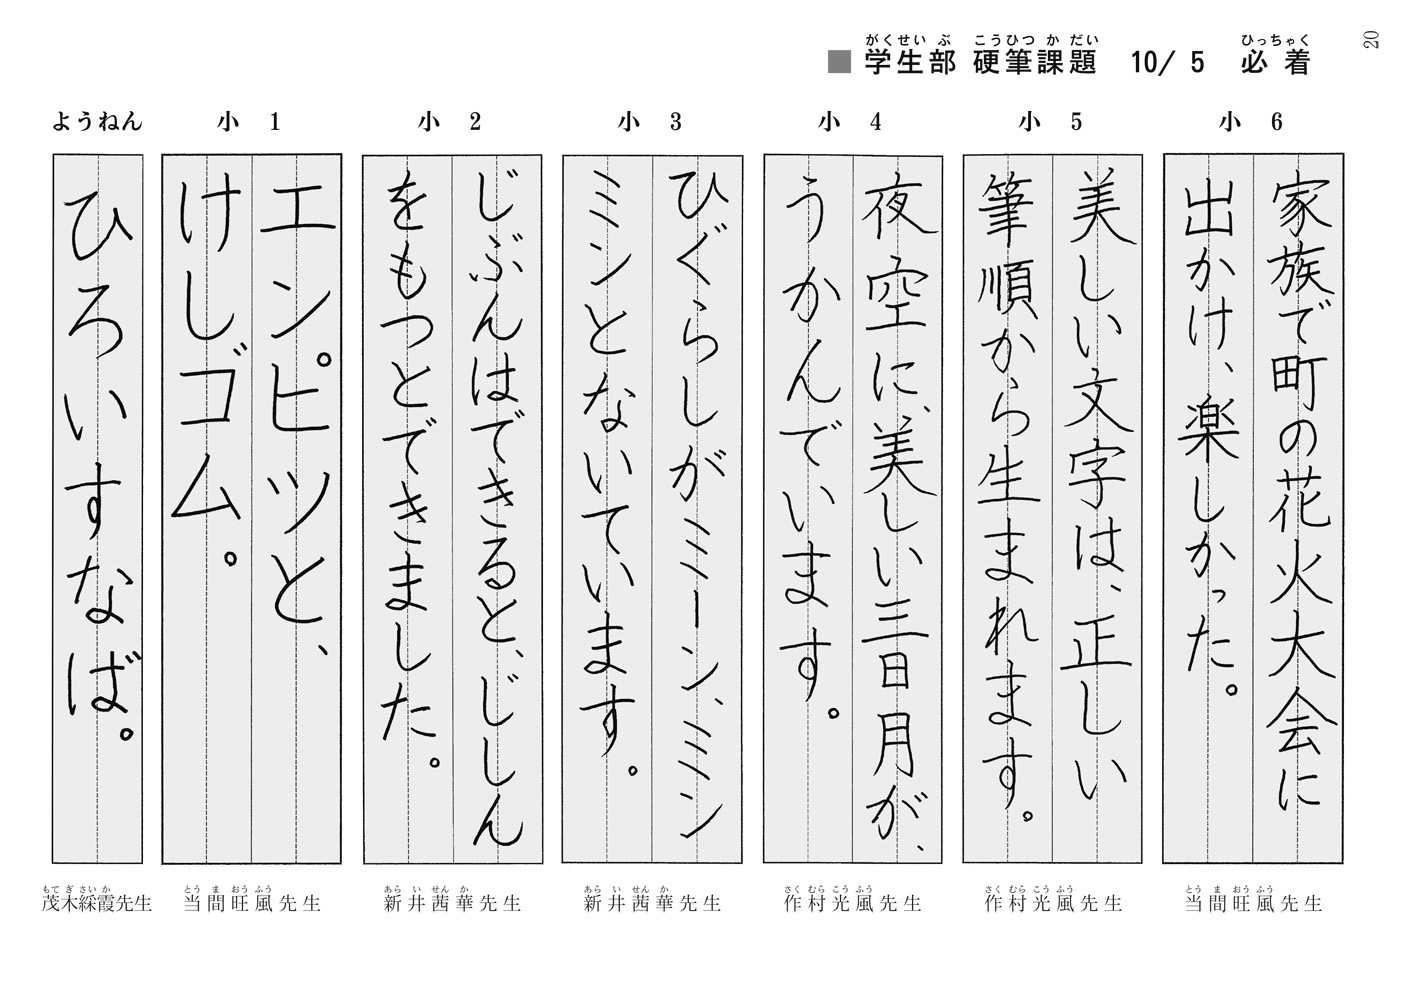 20
■ 学生部 硬筆課題 10/5 必着
がくせいぶ こうひつかだい ひっちゃく
小 6
家族で町の花火大会に
出かけ、楽しかった。
当間旺風先生
とうまおうふう
小 5
美しい文字は、正しい
筆順から生まれます。
作村光風先生
さくむらこうふう
小 4
夜空に、美しい三日月が、
うかんでいます。
作村光風先生
さくむらこうふう
小 3
ひぐらしがミミーン、ミミン
ミンとないています。
新井茜華先生
あらいせんか
小 2
じぶんはできると、じしん
をもつとできました。
新井茜華先生
あらいせんか
小 1
エンピツと、
けしゴム。
当間旺風先生
とうまおうふう
ようねん
ひろいすなば。
茂木綵霞先生
もてぎさいか